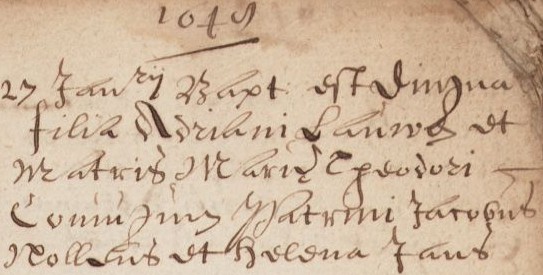 1649
27 Janrij Bapt est Dingna
filia Adriani Lauwes et
Matris Mariæ Theodori
Coniugum Patrini Jacobus
Nollens et Helena Jans